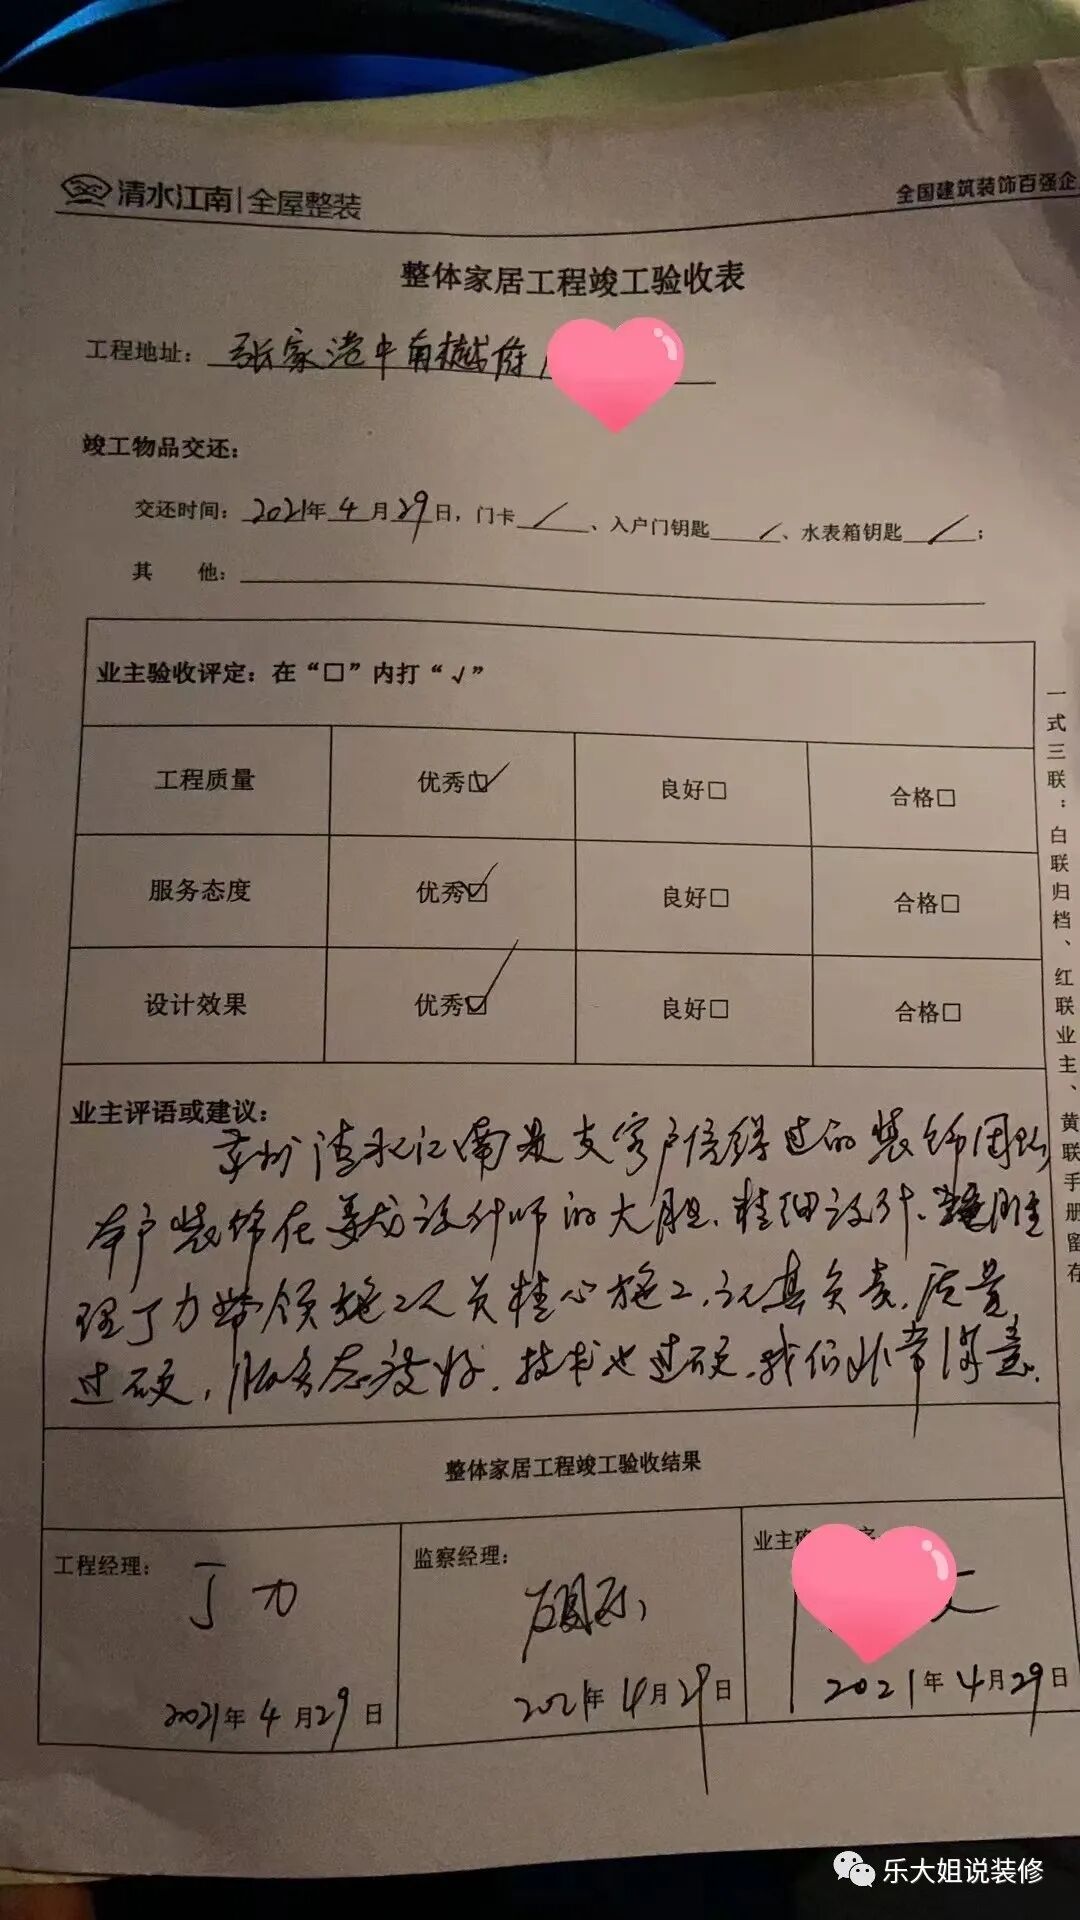 清水江南|全屋整装
全国建筑装饰百强企
整体家居工程竣工验收表
工程地址：张家港中南樾府
竣工物品交还：
交还时间：2021年4月29日，门卡/、入户门钥匙/、水表箱钥匙/；
其 他：
业主验收评定：在“□”内打“√”
工程质量 优秀☑ 良好□ 合格□
服务态度 优秀☑ 良好□ 合格□
设计效果 优秀☑ 良好□ 合格□
一式三联：白联归档、红联业主、黄联手册留存
业主评语或建议：
苏州清水江南是支客户信得过的装饰团队
本户装饰在姜龙设计师的大胆、精细设计、
理丁力带领施工人员精心施工，认真负责，质量
过硬，服务态度好，技术也过硬，我们非常满意。
整体家居工程竣工验收结果
工程经理：丁力
2021年4月29日
监察经理：
2021年4月29日
业主确
2021年4月29日
乐大姐说装修